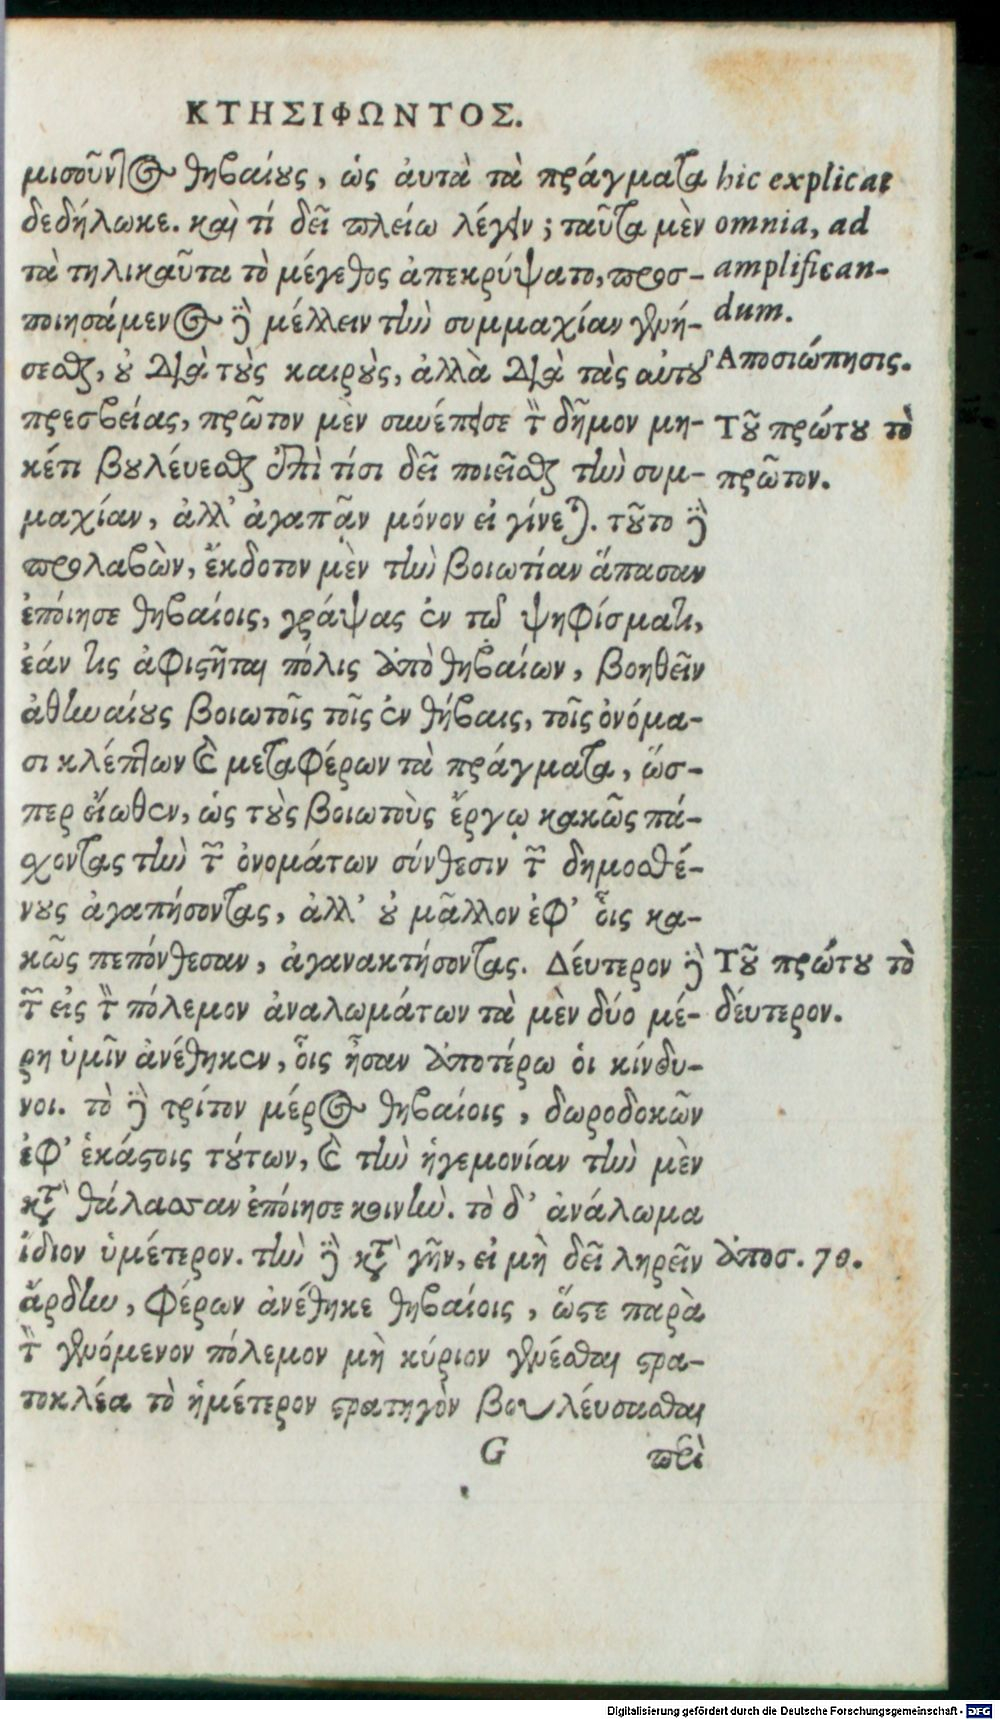 ΚΤΗΣΙΦΩΝΤΟΣ.
μισοῦντος θηβαίους, ὡς ἀυτὰ τὰ πράγματα
δεδήλωκε. καὶ τί δεῖ πλείω λέγειν; ταῦτα μὲν
τὰ τηλικαῦτα τὸ μέγεθος ἀπεκρύψατο, προσ-
ποιησάμενος δὲ μέλλειν τὴν συμμαχίαν γενή-
σεσθαι, οὐ διὰ τοὺς καιροὺς, ἀλλὰ διὰ τὰς αὑτοῦ
πρεσβείας, πρῶτον μὲν συνέπεισε τὸν δῆμον μη-
κέτι βουλέυεσθαι ἐπὶ τίσι δεῖ ποιεῖσθαι τὴν συμ-
μαχίαν, ἀλλ' ἀγαπᾶν μόνον εἰ γίνεται. τοῦτο δὲ
προλαβὼν, ἔκδοτον μὲν τὴν βοιωτίαν ἅπασαν
ἐποίησε θηβαίοις, γράψας ἐν τῷ ψηφίσματι,
ἐάν τις ἀφιστῆται πόλις ἀπὸ θηβαίων, βοηθεῖν
ἀθηναίους βοιωτοῖς τοῖς ἐν θήβαις, τοῖς ὀνόμα-
σι κλέπτων καὶ μεταφέρων τὰ πράγματα, ὥσ-
περ ἔιωθεν, ὡς τοὺς βοιωτοὺς ἔργῳ κακῶς πά-
σχοντας τὴν τῶν ὀνομάτων σύνθεσιν τῶν δημοσθέ-
νους ἀγαπήσοντας, ἀλλ' οὐ μᾶλλον ἐφ' οἷς κα-
κῶς πεπόνθεσαν, ἀγανακτήσοντας. Δέυτερον δὲ
τῶν εἰς τὸν πόλεμον ἀναλωμάτων τὰ μὲν δύο μέ-
ρη ὑμῖν ἀνέθηκεν, οἷς ἦσαν ἀποτέρω οἱ κίνδυ-
νοι. τὸ δὲ τρίτον μέρος θηβαίοις, δωροδοκῶν
ἐφ' ἑκάστοις τούτων, καὶ τὴν ἡγεμονίαν τὴν μὲν
κατὰ θάλασσαν ἐποίησε κοινὴν. τὸ δ' ἀνάλωμα
ἴδιον ὑμέτερον. τὴν δὲ κατὰ γῆν, εἰ μὴ δεῖ ληρεῖν
ἄρδην, φέρων ἀνέθηκε θηβαίοις, ὥστε παρὰ
τὸν γενόμενον πόλεμον μὴ κύριον γενέσθαι στρα-
τοκλέα τὸ ἡμέτερον στρατηγὸν βουλέυσασθαι
G
περὶ
hic explicat
omnia, ad
amplifican-
dum.
Αποσιώπησις.
Τοῦ πρώτου τὸ
πρῶτον.
Τοῦ πρώτου τὸ
δέυτερον.
ἀποσ. 70.
Digitalisierung gefördert durch die Deutsche Forschungsgemeinschaft - DFG